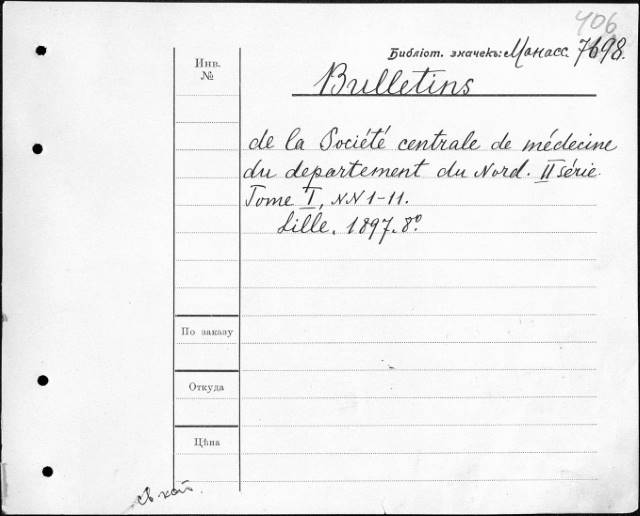 406
Библіот. значекъ: Манасс. 7698.
Инв.
№
Bulletins
de la Société centrale de médecine
du departement du Nord. II série.
Tome I, NN 1-11.
Lille. 1897. 8º.
По заказу
Откуда
Цѣна